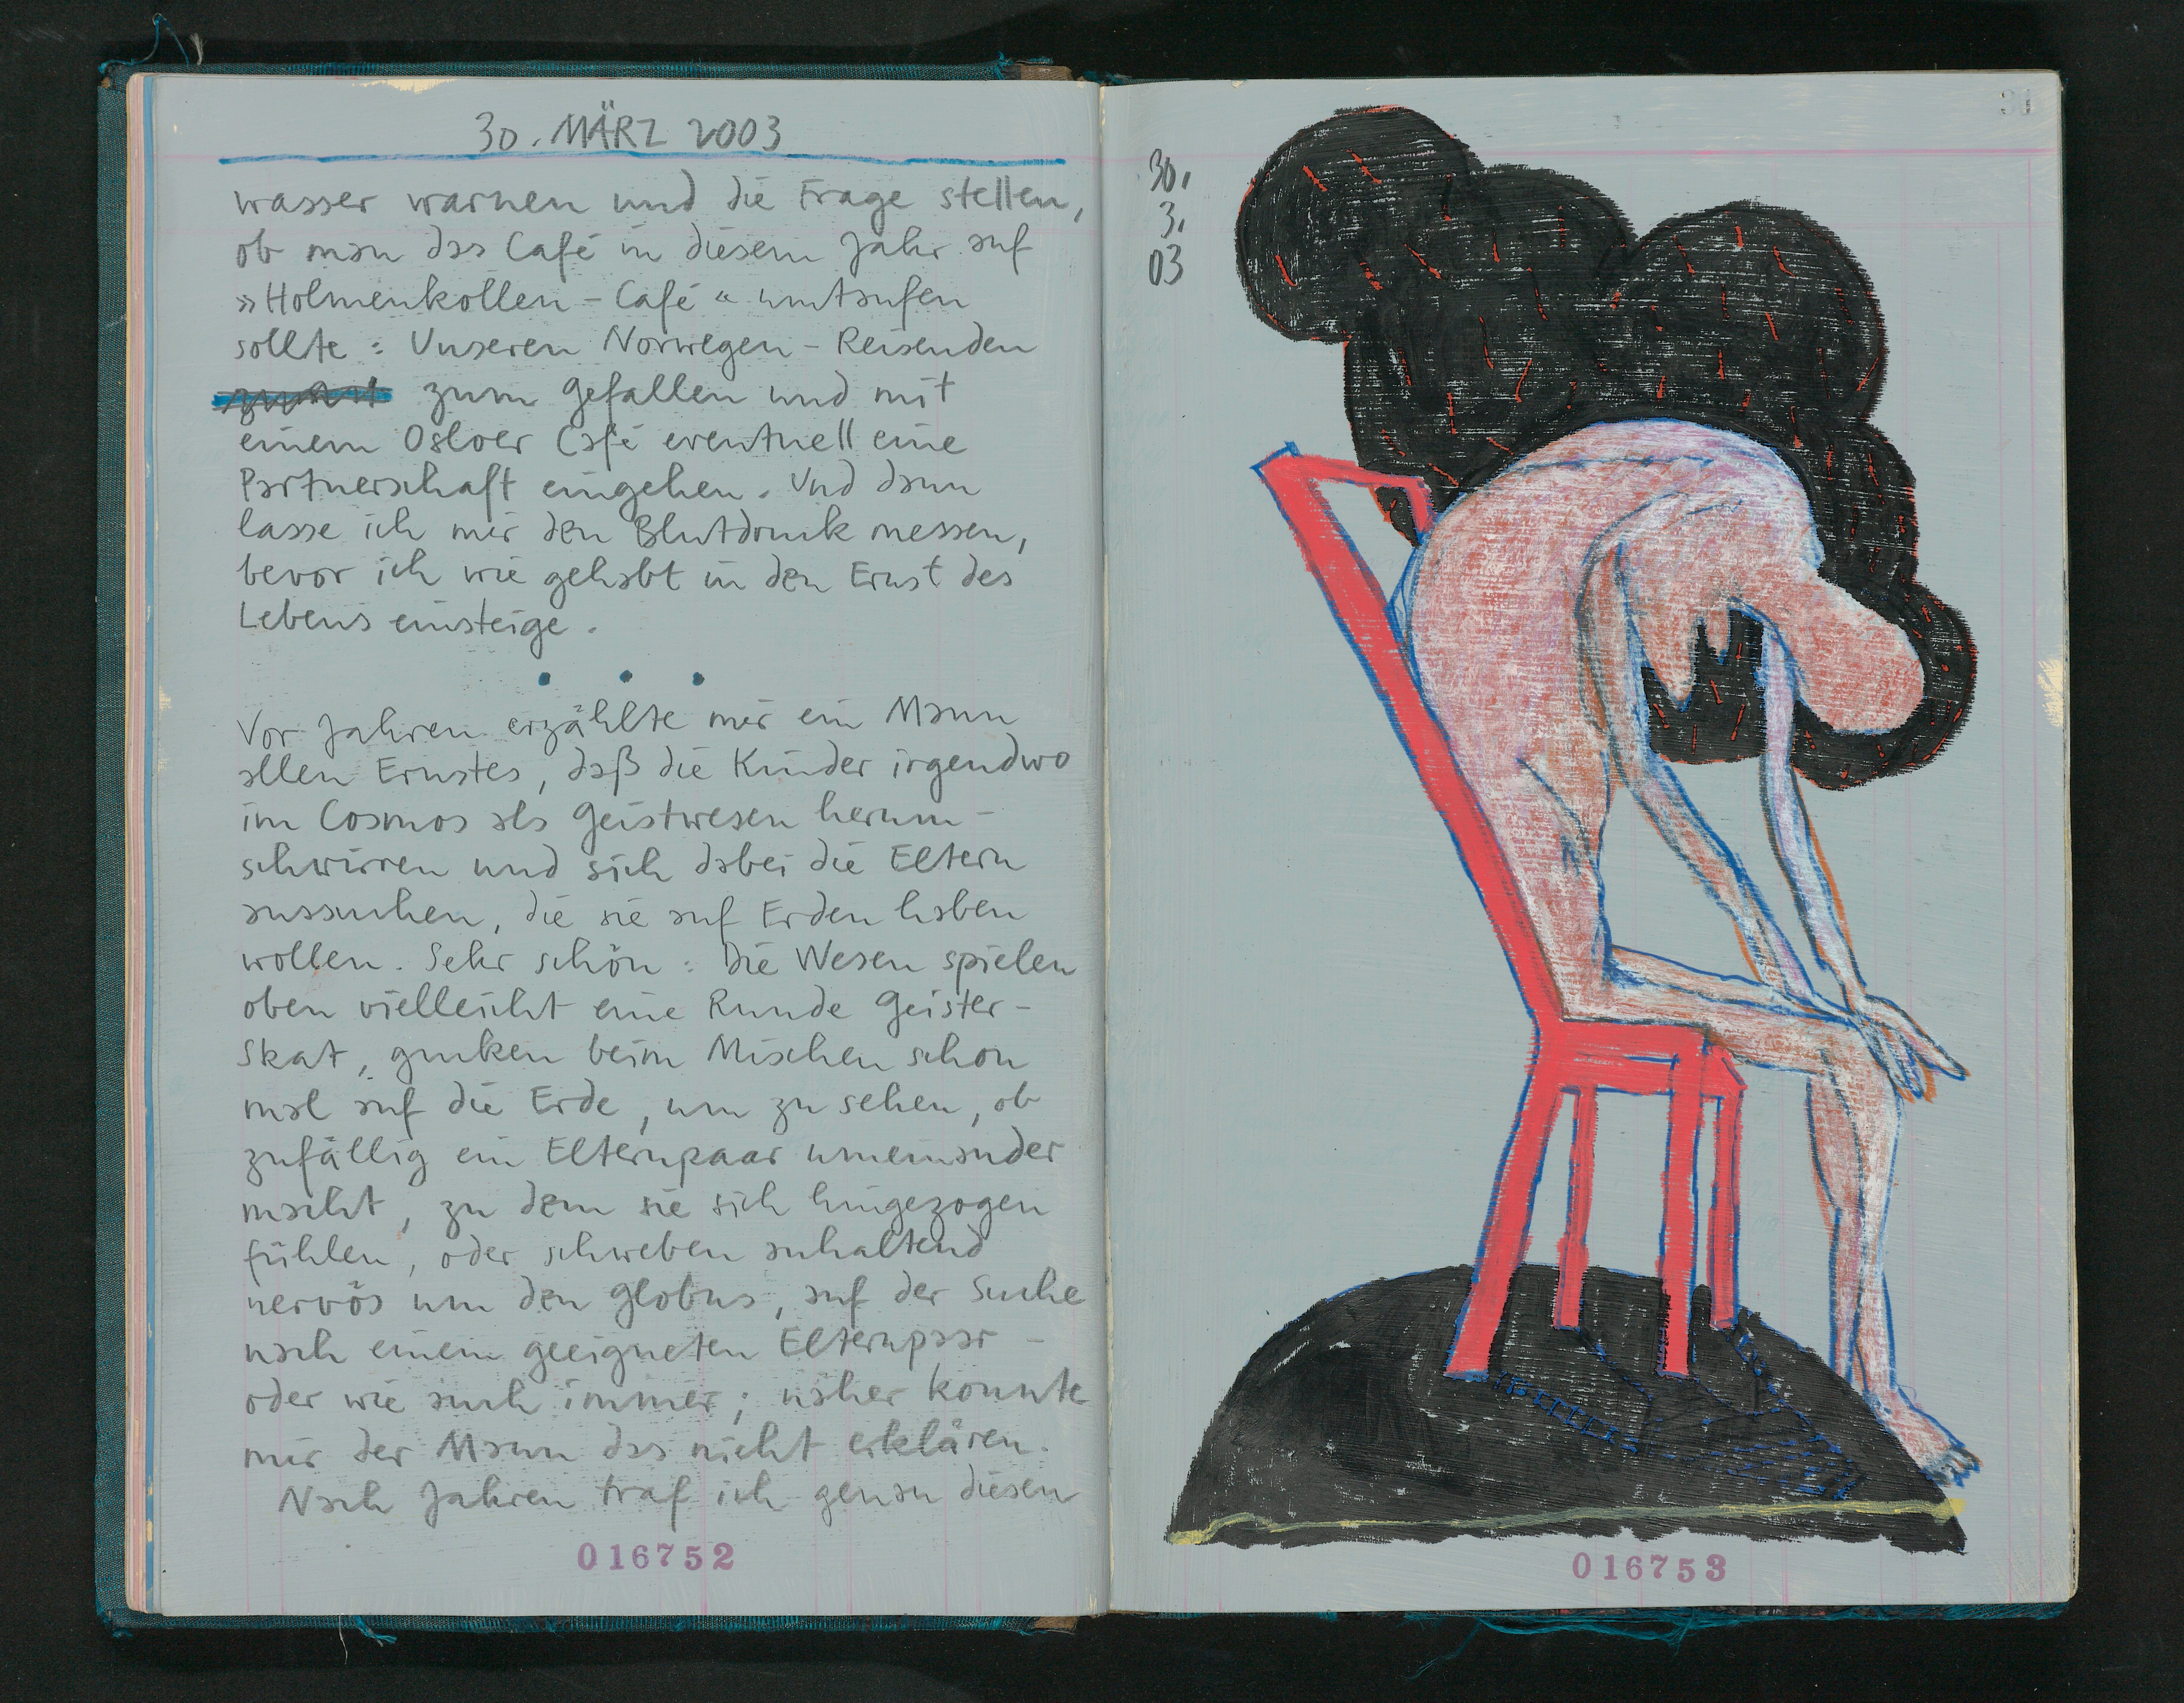 30. MÄRZ 2003
wasser warnen und die Frage stellen,
ob man das Café in diesem Jahr auf
»Holmenkollen-Café« umtaufen
sollte: Unseren Norwegen-Reisenden
zum Gefallen und mit
einem Osloer Café eventuell eine
Partnerschaft eingehen. Und dann
lasse ich mir den Blutdruck messen,
bevor ich wie gehabt in den Ernst des
Lebens einsteige.
Vor Jahren erzählte mir ein Mann
allen Ernstes, daß die Kinder irgendwo
im Cosmos als Geistwesen herum-
schwirren und sich dabei die Eltern
aussuchen, die sie auf Erden haben
wollen. Sehr schön: Die Wesen spielen
oben vielleicht eine Runde Geister-
Skat, gucken beim Mischen schon
mal auf die Erde, um zu sehen, ob
zufällig ein Elternpaar umeinander
macht, zu dem sie sich hingezogen
fühlen, oder schweben anhaltend
nervös um den Globus, auf der Suche
nach einem geeigneten Elternpaar –
oder wie auch immer; näher konnte
mir der Mann das nicht erklären.
Nach Jahren traf ich genau diesen
016752
30.
3.
03
016753